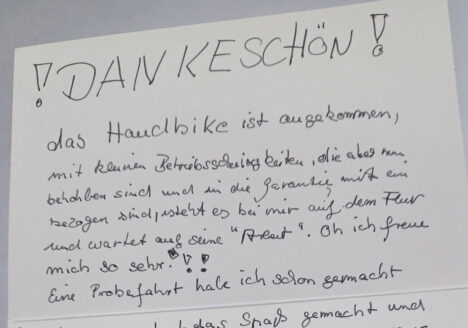 !DANKESCHÖN!
das Handbike ist angekommen,
mit kleinen Betriebsschwierigkeiten, die aber nun
behoben sind und in die Garantie mit ein
bezogen sind, steht es bei mir auf dem Flur
und wartet auf seine "Arbeit". Oh ich freue
mich so sehr!!
Eine Probefahrt habe ich schon gemacht
das Spaß gemacht und